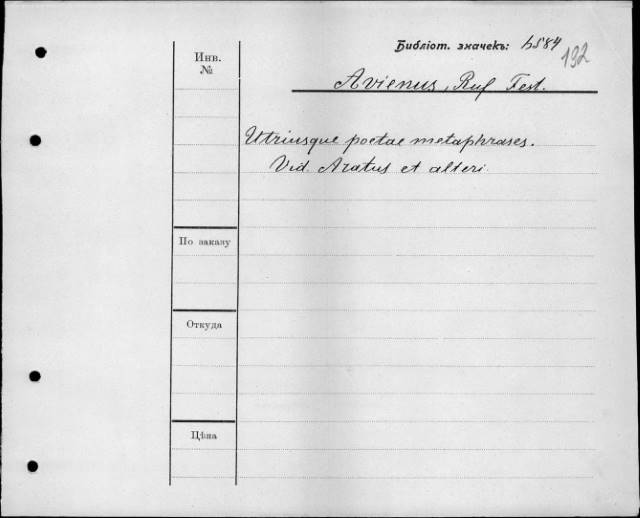 Библіот. значекъ: b584
192
Инв.
№
Avienus, Ruf Fest.
Utriusque poetae metaphrases.
Vid. Aratus et alteri
По заказу
Откуда
Цѣна